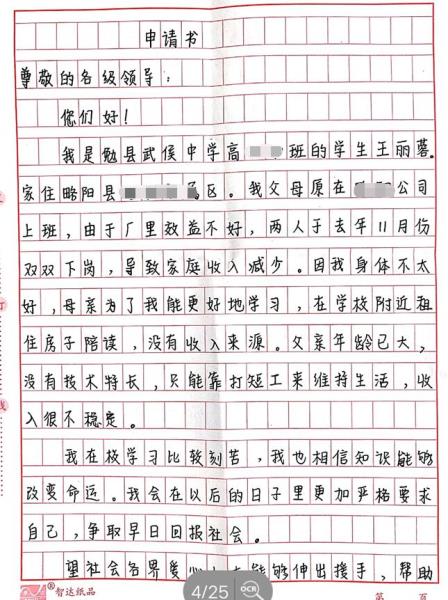 申请书
尊敬的各级领导：
您们好！
我是勉县武侯中学高 班的学生王丽蓉。
家住略阳县 区。我父母原在 公司
上班，由于厂里效益不好，两人于去年11月份
双双下岗，导致家庭收入减少。因我身体不太
好，母亲为了我能更好地学习，在学校附近租
住房子陪读，没有收入来源。父亲年龄已大，
没有技术特长，只能靠打短工来维持生活，收
入很不稳定。
我在校学习比较刻苦，我也相信知识能够
改变命运。我会在以后的日子里更加严格要求
自己，争取早日回报社会。
望社会各界爱心 能够伸出援手，帮助
智达纸品 第 页
4/25 OCR
订
线